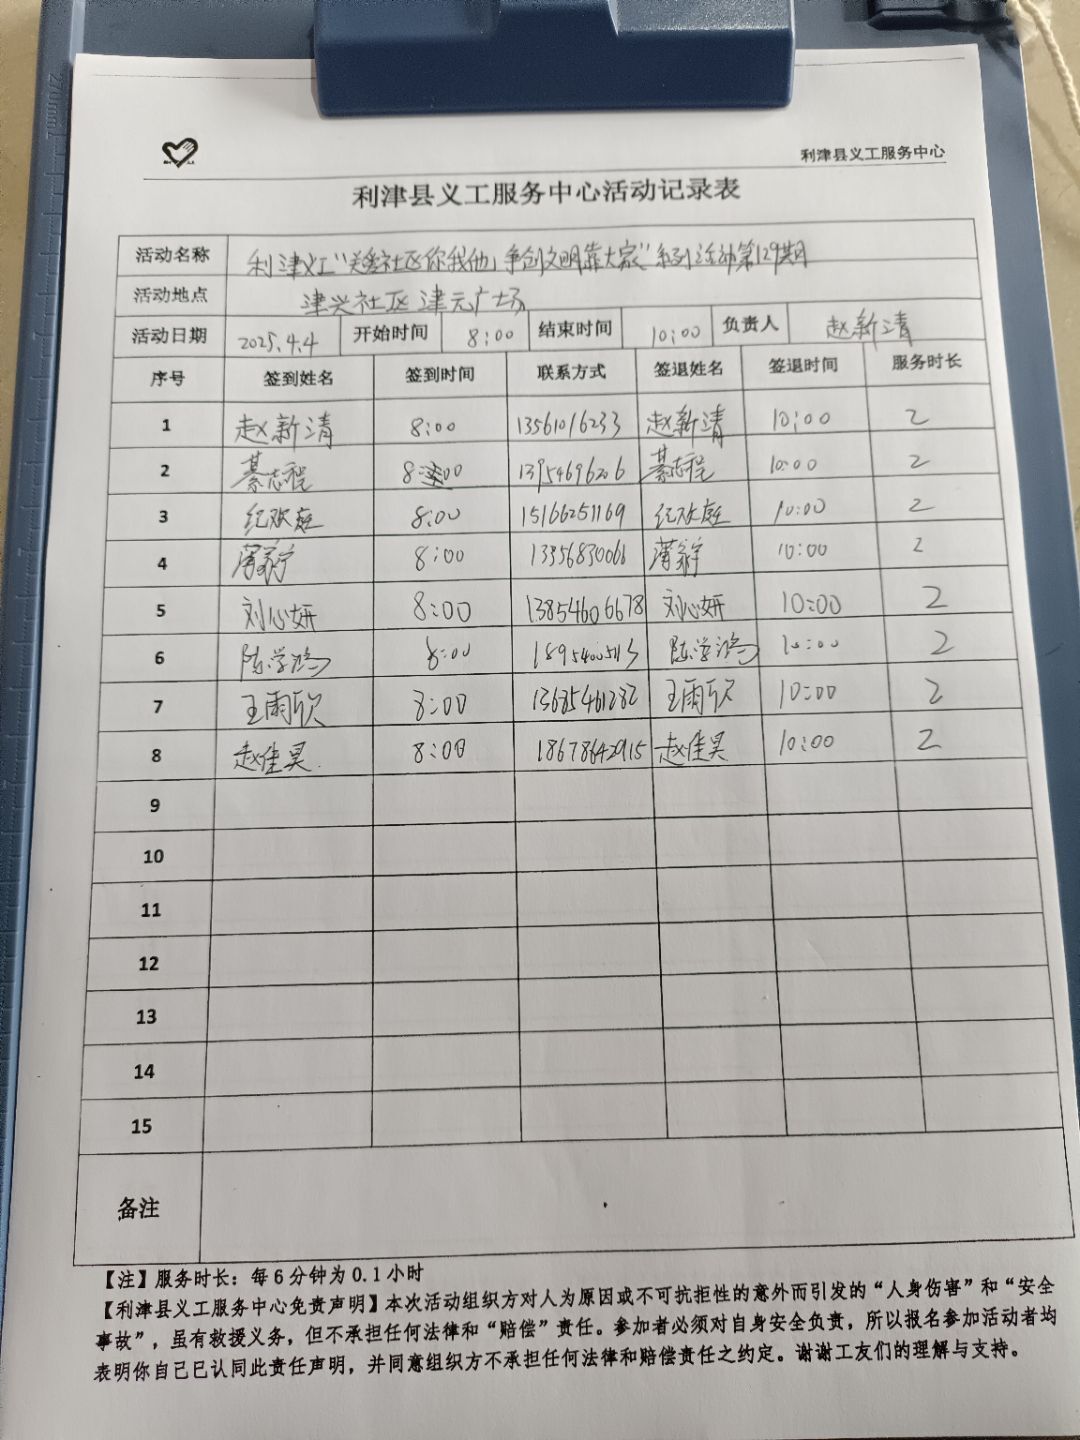 利津县义工服务中心
利津县义工服务中心活动记录表
活动名称 利津义工“关爱社区你我他，争创文明靠大家”系列活动第129期
活动地点 津兴社区 津元广场
活动日期 2025.4.4 开始时间 8:00 结束时间 10:00 负责人 赵新清
序号 签到姓名 签到时间 联系方式 签退姓名 签退时间 服务时长
1 赵新清 8:00 13561016233 赵新清 10:00 2
2 綦志程 8:00 13954696206 綦志程 10:00 2
3 纪欢庭 8:00 15166251169 纪欢庭 10:00 2
4 8:00 13356830066 10:00 2
5 刘心妍 8:00 13854606678 刘心妍 10:00 2
6 陈学鸿 8:00 18954005113 陈学鸿 10:00 2
7 王雨欣 8:00 13685461282 王雨欣 10:00 2
8 赵佳昊 8:00 18678642915 赵佳昊 10:00 2
9
10
11
12
13
14
15
备注
【注】服务时长：每6分钟为0.1小时
【利津县义工服务中心免责声明】本次活动组织方对人为原因或不可抗拒性的意外而引发的“人身伤害”和“安全
事故”，虽有救援义务，但不承担任何法律和“赔偿”责任。参加者必须对自身安全负责，所以报名参加活动者均
表明你自己已认同此责任声明，并同意组织方不承担任何法律和赔偿责任之约定。谢谢工友们的理解与支持。